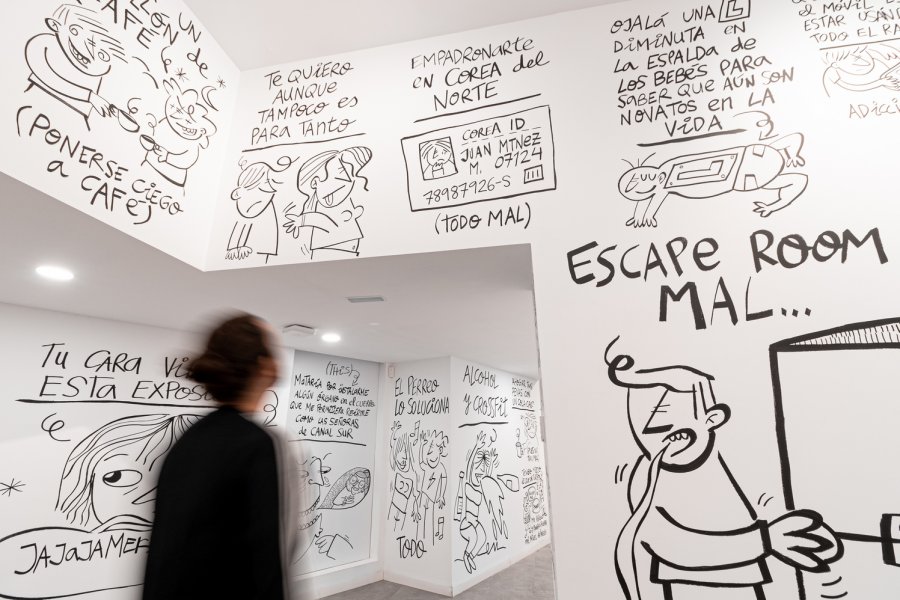 UN
CAFÉ
(PONERSE CIEGO
A CAFÉ)
TE QUIERO
AUNQUE
TAMPOCO ES
PARA TANTO
EMPADRONARTE
EN COREA DEL
NORTE
COREA ID
JUAN MTNEZ
M. 07124
78987926-S
(TODO MAL)
OJALÁ UNA L
DIMINUTA EN
LA ESPALDA DE
LOS BEBÉS PARA
SABER QUE AÚN SON
NOVATOS EN LA
VIDA
L
EL MÓVIL
ESTAR USAN
TODO EL
ADICCI
ESCAPE ROOM
MAL...
TU CARA
ESTA EXPOS
JAJAJAME
(THIS)
MATARÍA POR
ALGÚN ÓRGANO
QUE ME PERMITIERA
COMO LAS SEÑORAS
DE CANAL SUR
EL PERREO
LO SOLUCIONA
TODO
ALCOHOL
Y CROSSFIT